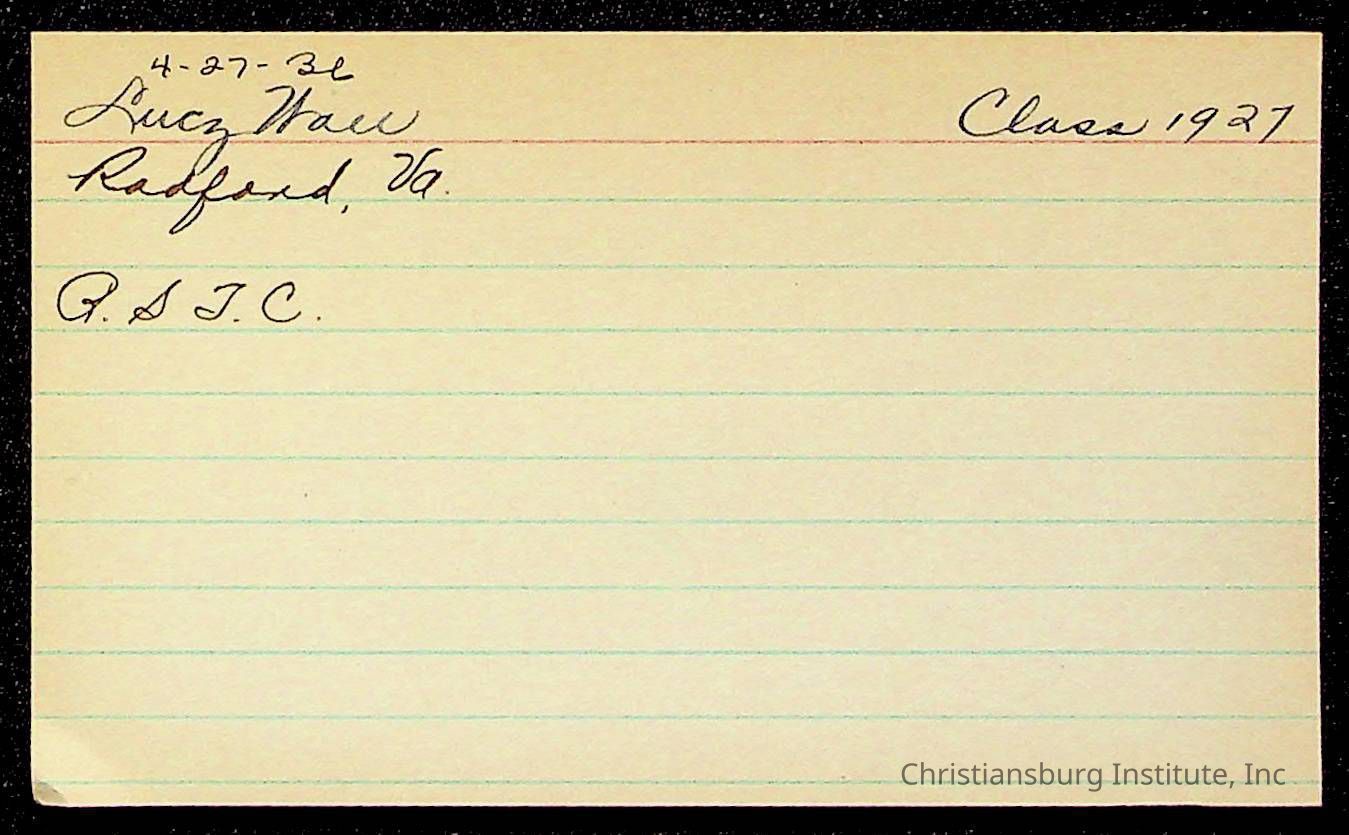 4-27-36
Lucy Wall
Class 1927
Radford, Va.
R. S T. C.
Christiansburg Institute, Inc